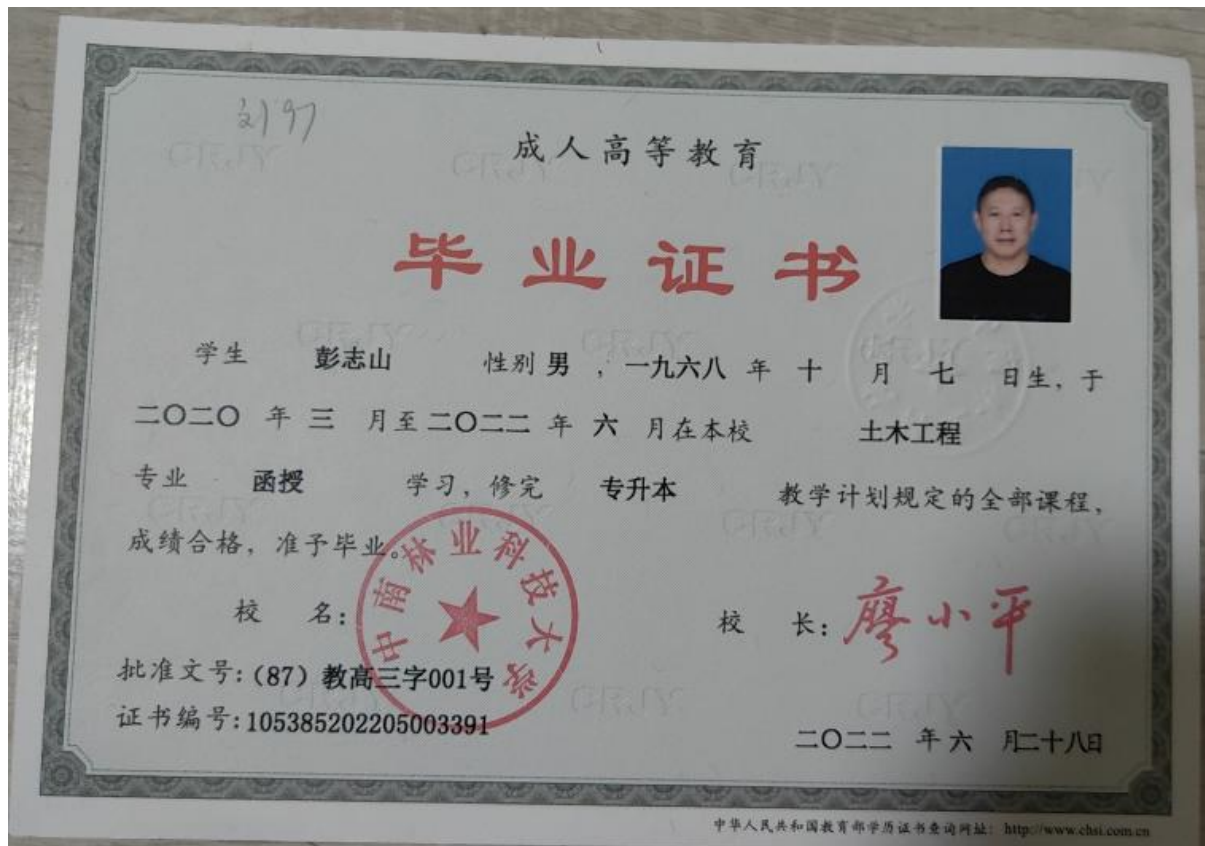 成人高等教育
毕业证书
学生 彭志山 性别 男 ，一九六八 年 十 月 七 日生，于
二〇二〇 年 三 月至 二〇二二 年 六 月在本校 土木工程
专业 函授 学习，修完 专升本 教学计划规定的全部课程，
成绩合格，准予毕业。
中南林业科技大学
校 名：
校 长：廖小平
批准文号：(87）教高三字001号
证书编号：105385202205003391
二〇二二 年 六 月二十八日
中华人民共和国教育部学历证书查询网址：http://www.chsi.com.cn
CRJY